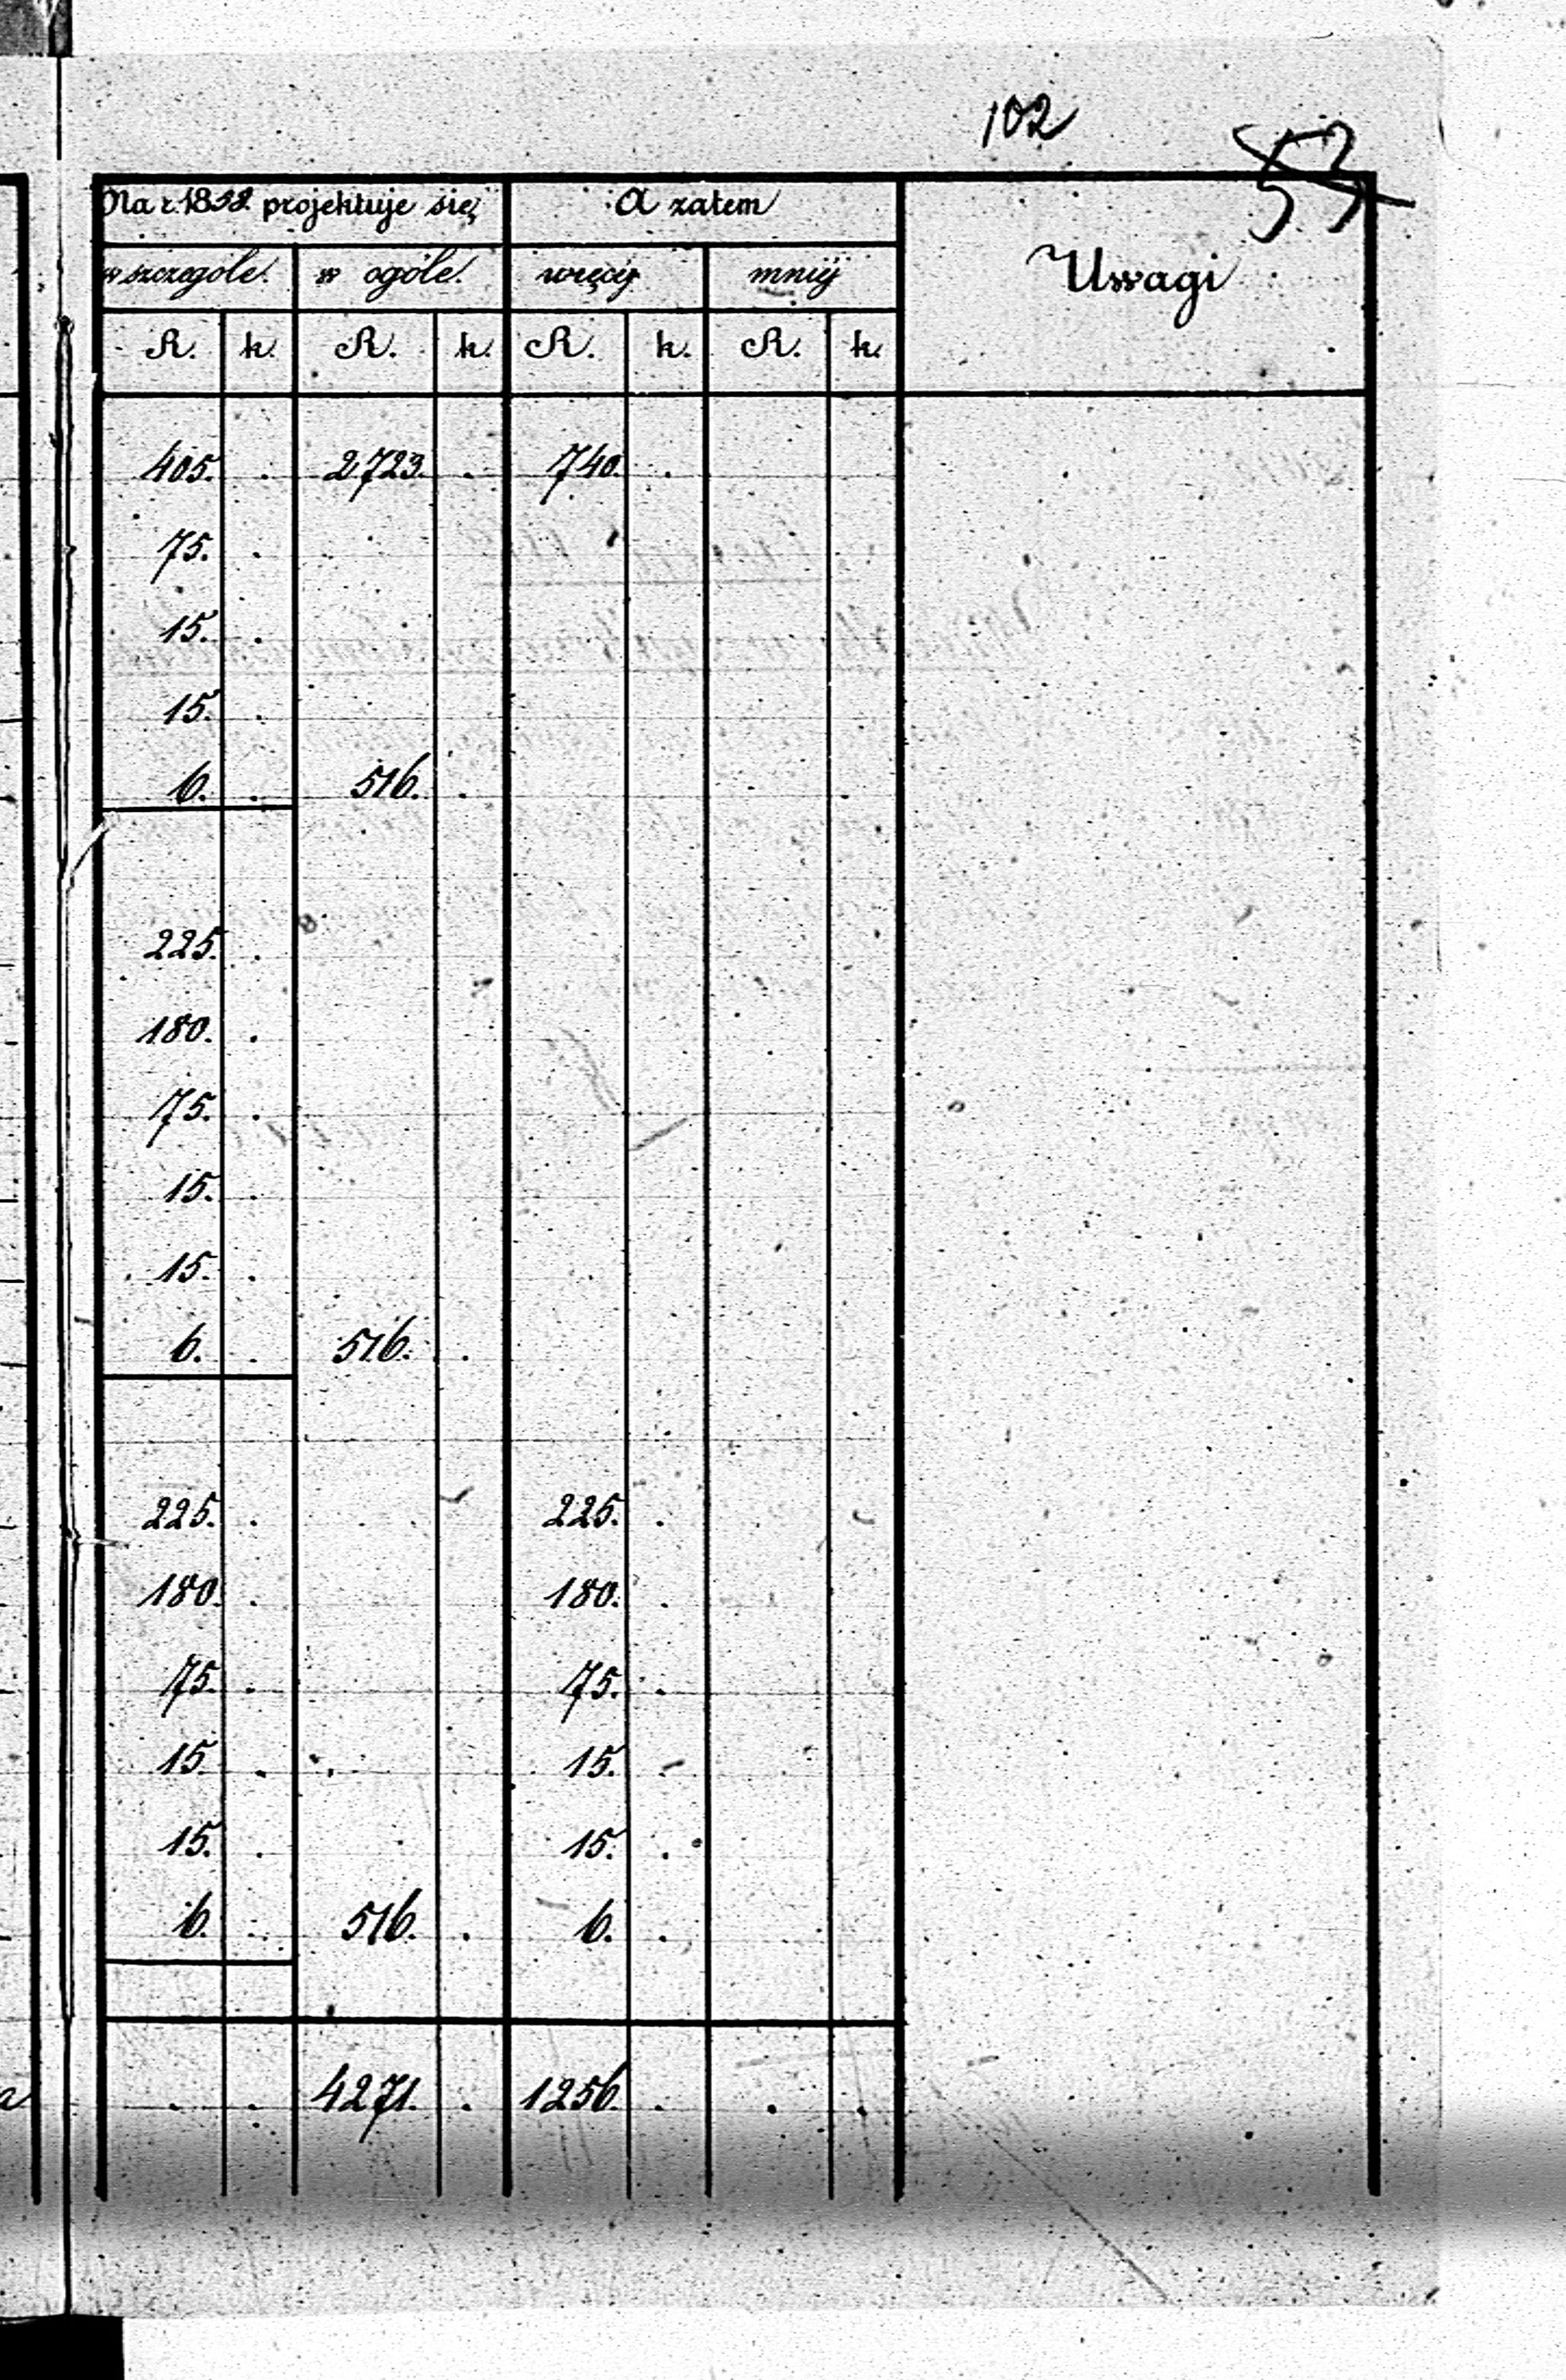 102
53
Na r. 1858. projektuje się A zatem Uwagi
w szczególe. w ogóle. więcéj mniéj
R. k. R. k. R. k. R. k.
405. . 2,723. . 740. .
75. .
15. .
15. .
6. . 516. .
225. .
180. .
75. .
15. .
15. .
6. . 516. .
225. . 225. .
180. . 180. .
75. . 75. .
15. . 15. .
15. . 15. .
6. . 516. . 6. .
. . 4271. . 1256. . . .